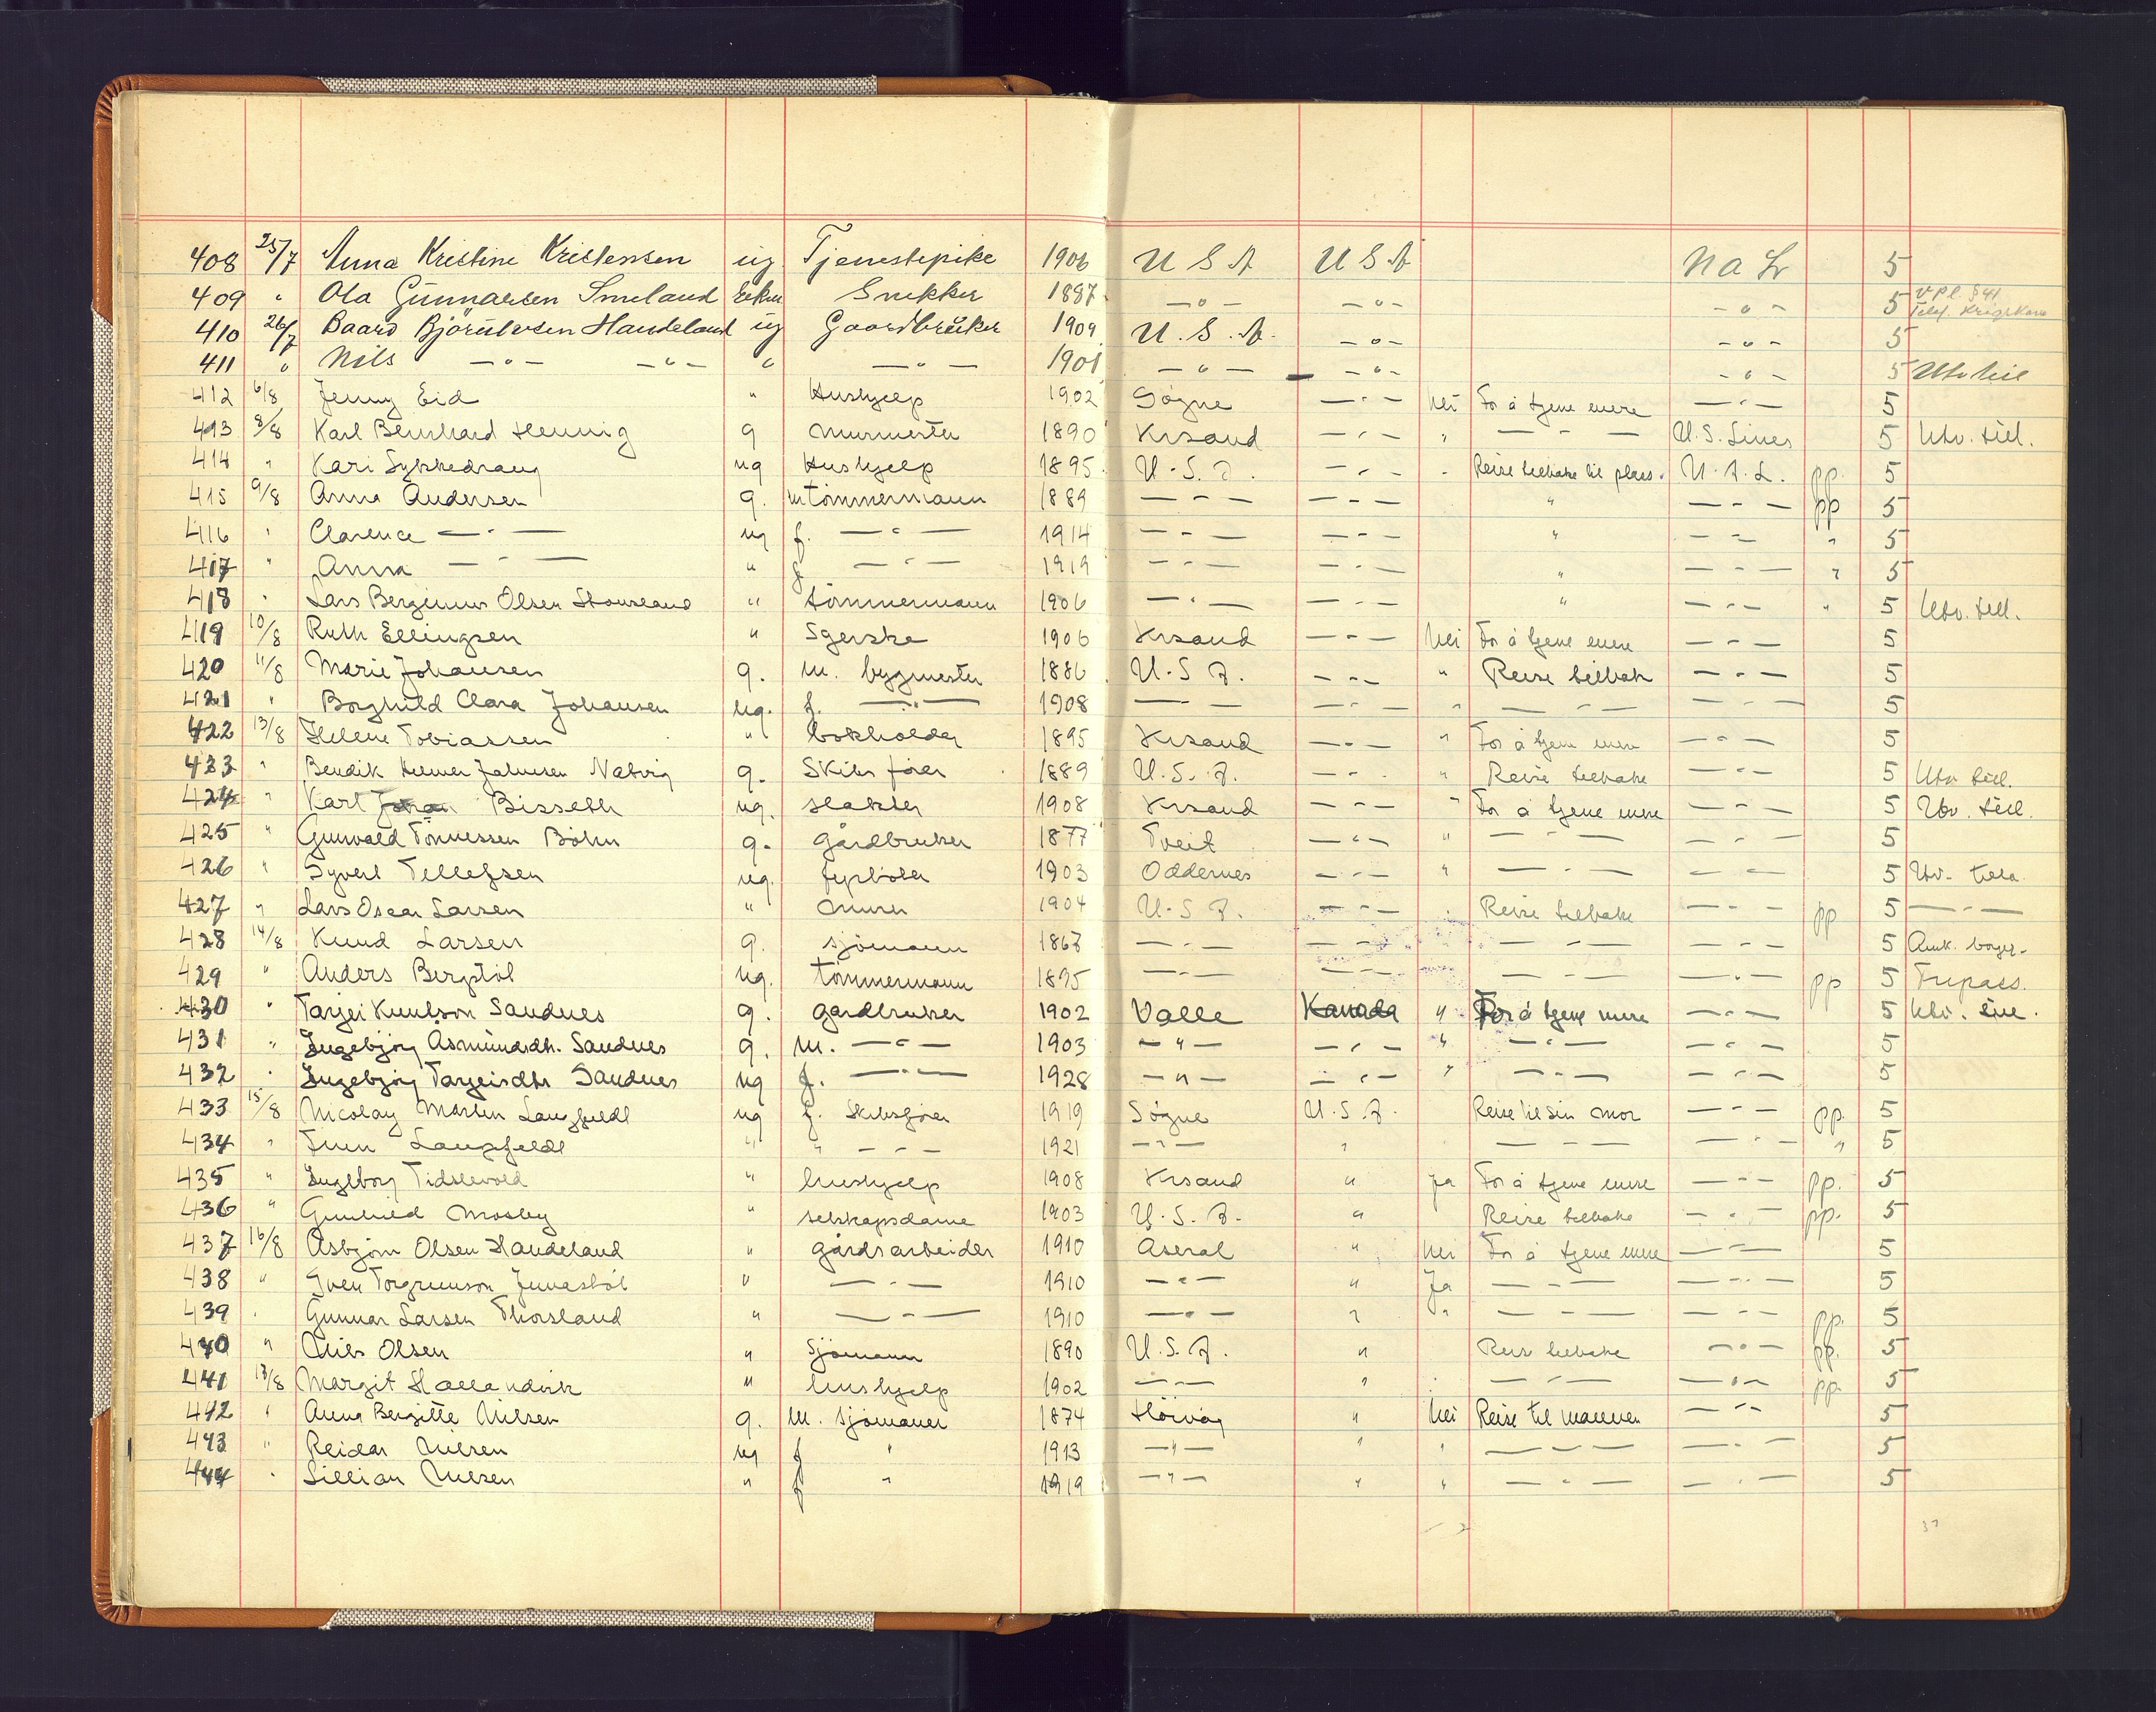 408 25/7 Anna Kristine Kristensen ug Tjenestepike 1906 U S A U S A N A L 5
409 " Ola Gunnarsen Smeland Enkem Snekker 1897 — " — — " — — " — 5 V pl. § 41 Telef. Krigskom
410 26/7 Baard Bjørulvsen Handeland ug Gaardbruker 1909 U. S. A. — " — — " — 5
411 " Nils — " — — " — " — " — 1901 — " — — " — — " — 5 Utv. till
412 6/8 Jenny Eid " Hushjelp 1902 Søgne — " — Nei For å tjene mere — " — 5
413 8/8 Karl Bernhard Hennig g Murmester 1890 Krsand — " — " — — — U.S. Lines 5 Utv. till.
414 " Kari Sykkedraug ug Hushjelp 1895 U. S. A. — " — " Reise tilbake til plass. N. A. L. pp. 5
415 9/8 Anna Andersen g. m tømmermann 1889 — " — — " — " — " — pp 5
416 " Clarence — " — ug f. — " — 1914 — " — — " — " — " — " 5
417 " Anna — " — " f — " — 1919 — " — — " — " — " — " 5
418 " Lars Berginius Olsen Stousland " tømmermann 1906 — " — — " — " — " — " 5 Utv. till.
419 10/8 Ruth Ellingsen " Syerske 1906 Krsand — " — Nei For å tjene mere — " — 5
420 11/8 Marie Johansen g. m. bygmester 1886 U. S. A. — " — " Reise tilbake — " — 5
421 " Borghild Clara Johansen ug. f. — " — 1908 — " — — " — " — " — — " — 5
422 13/8 Helene Tobiassen " bokholder 1895 Krsand — " — " For å tjene mere — " — 5
423 " Bendik Helmer Johnsen Natvig g. Skibsfører 1889 U. S. A. — " — " Reise tilbake — " — 5 Utv. till.
424 " Karl Johan Bisseth ug. slakter 1908 Krsand — " — " For å tjene mere — " — 5 Utv. till.
425 " Gunvald Tønnessen Bøhn g. gårdbruker 1877 Tveit — " — " — " — — " — 5
426 " Syvert Tellefsen ug. fyrbøter 1903 Oddernes — " — " — " — — " — 5 Utv. till.
427 " Lars Oscar Larsen " murer 1904 U. S. A. — " — . Reise tilbake — " — pp 5 — " —
428 14/8 Knud Larsen g. sjømann 1867 — " — — " — — " — — " — 5 Amk. borger.
429 " Anders Bergstøl ug. tømmermann 1895 — " — — " — — " — — " — pp 5 Fripass.
430 " Tarjei Knutson Sandnes g. gårdbruker 1902 Valle Kanada " For å tjene mere — " — 5 Utv. till.
431 " Ingebjørg Åsmundsdtr. Sandnes g. m. — " — 1903 — " — — " — " — " — — " — 5
432 " Ingebjørg Tarjeisdtr Sandnes ug f. — " — 1928 — " — — " — " — " — — " — 5
433 15/8 Nicolay Martin Langfeldt ug f. Skibsfører 1919 Søgne U. S. A. Reise til sin mor — " — pp. 5
434 " Finn Langfeldt " " — " — 1921 — " — " — " — — " — " 5
435 " Ingeborg Tidslevold " hushjelp 1908 Krsand " Ja For å tjene mere — " — pp. 5
436 " Gunhild Mosby " selskapsdame 1903 U. S. A. " Reise tilbake — " — pp. 5
437 16/8 Asbjørn Olsen Handeland " gårdsarbeider 1910 Aseral " Nei For å tjene mere — " — 5
438 " Sven Torgrimson Junestøl " — " — 1910 — " — " Ja — " — — " — 5
439 " Gunnar Larsen Thorsland " — " — 1910 — " — " " — " — — " — pp. 5
440 " Nils Olsen " Sjømann 1890 U. S. A. " Reise tilbake — " — pp. 5
441 17/8 Margit Hallandvik " hushjelp 1902 — " — " — " — — " — pp. 5
442 " Anna Bergitte Nilsen g. m. sjømann 1874 Høvåg " Nei Reise til mannen — " — 5
443 " Reidar Nilsen ug f " 1913 — " — " " — " — — " — 5
444 " Lillian Nilsen " f " 1919 — " — " " — " — — " — 5